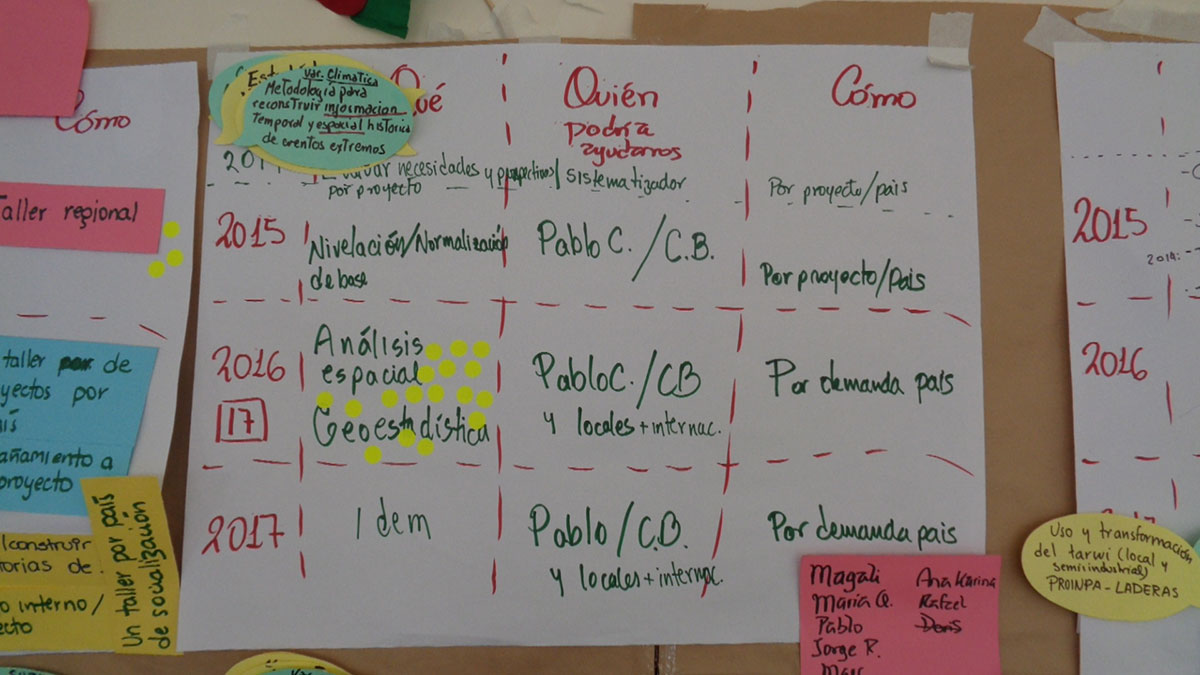 Cómo
Taller regional
taller por de
yectos por
añamiento a
proyecto
construir
torias de
o interno/
ecto
Un taller por país
de socialización
Var. Climática
Metodología para
reconstruir informacion
Temporal y espacial historica
de eventos extremos
Qué
Quién
podría
ayudarnos
Cómo
necesidades y
por proyecto
sistematizador
Por proyecto/pais
2015
Nivelación/Normalización
de base
Pablo C. / C.B.
Por proyecto/País
2016
17
Análisis
espacial
Geoestadística
Pablo C. / CB
y locales + internac.
Por demanda país
2017
Idem
Pablo / C.B.
y locales + internac.
Por demanda pais
Magali
Maria Q.
Pablo
Jorge R.
Ana Karina
Rafael
Doris
2015
2014:
2016
Uso y transformación
del tarwi (local y
semisindustrial)
PROINPA - LADERAS